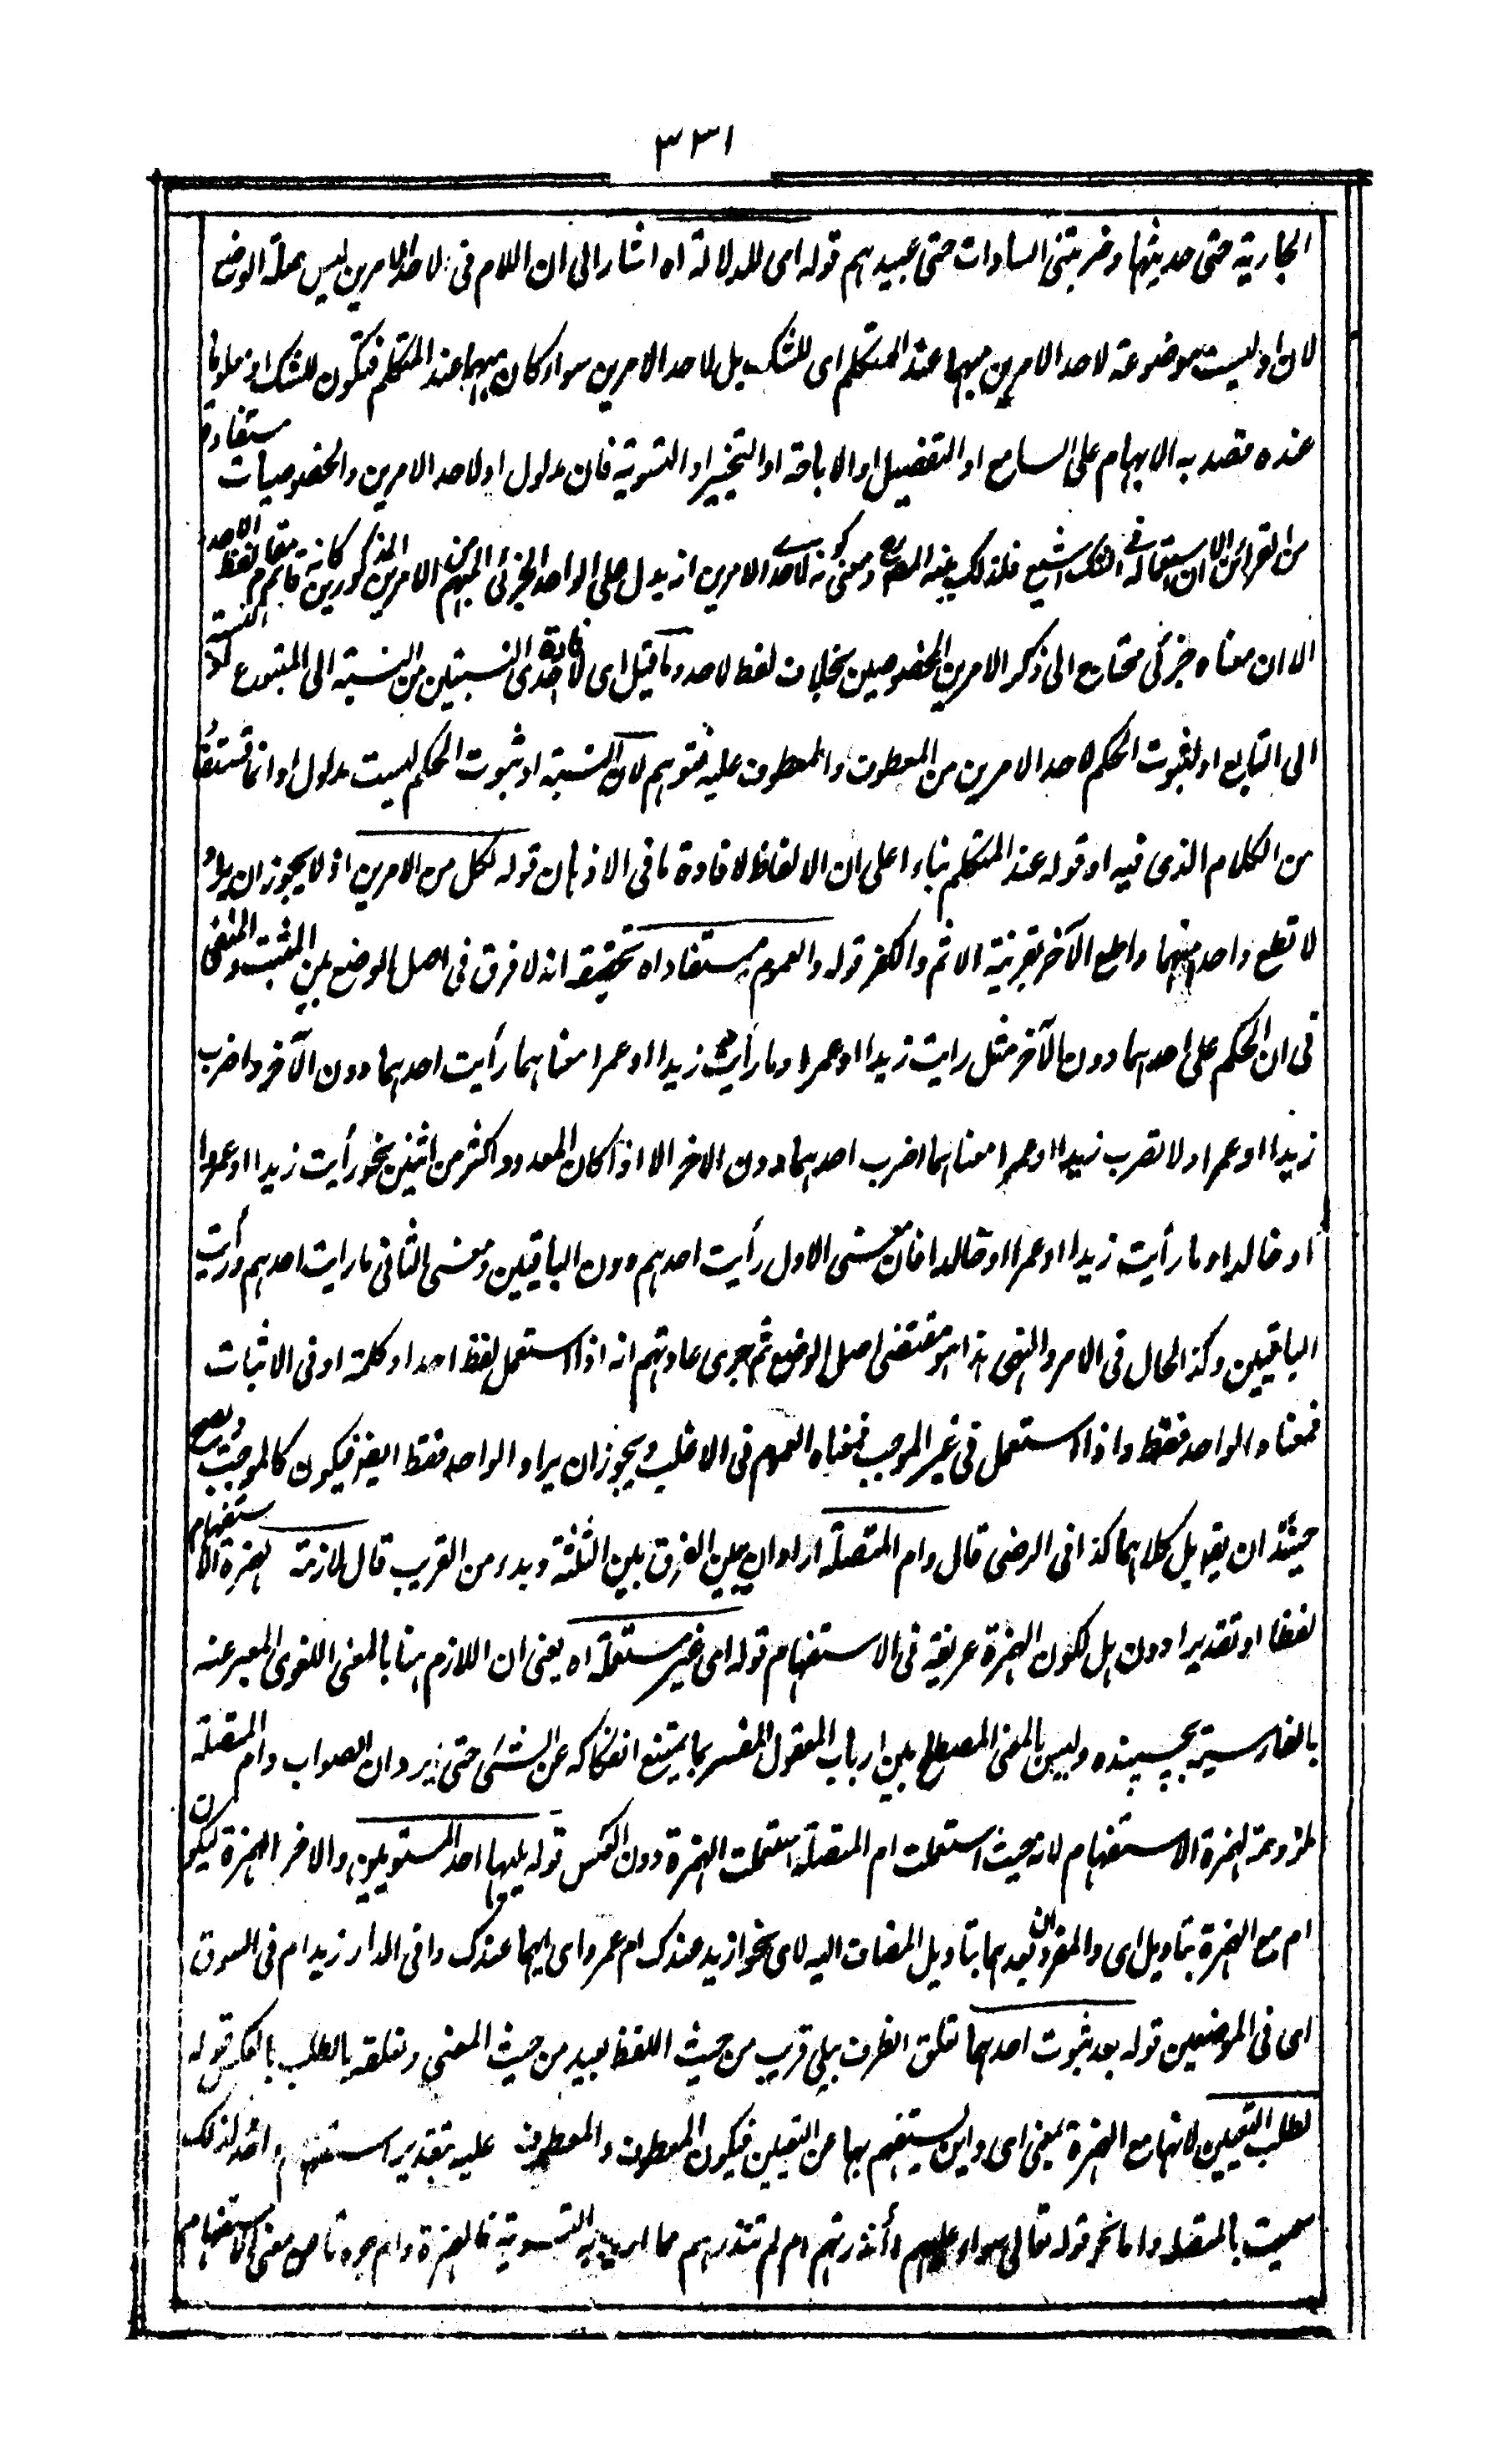 ٣٣١
الجارية حتى حديثها وضربتني السادات حتى عبيدهم قوله اى للدلالة اه اشار الى ان اللام فى لاحد الامرين ليس صلة الوضع
لان او ليست موضوعة لاحد الامرين مبهما عند المتكلم اى للشك بل لاحد الامرين سواء كان مبهما عند المتكلم فتكون للشك او معلوما
عنده قصد به الابهام على السامع او التفصيل او الاباحة او التخيير او التسوية فان مدلول او لاحد الامرين والخصوصيات مستفادة
من القرائن الا ان استعماله فى الشك اشيع فلذلك بينه المصنف ومعنى كونه لاحد الامرين انه يدل على الواحد الجزئى المبهم من الامرين المذكورين كانه قائم مقام لفظ الاحد
الا ان معناه جزئى محتاج الى ذكر الامرين المخصوصين بخلاف لفظ لاحد وما قيل اى لافادة احدى النسبتين من النسبة الى المتبوع والنسبة
الى التابع او لثبوت الحكم لاحد الامرين من المعطوف والمعطوف عليه فتوهم لان النسبة او ثبوت الحكم ليست مدلول او وانما تستفاد
من الكلام الذى فيه او قوله عند المتكلم بناء اعلى ان الالفاظ لافادة ما فى الاذهان قوله لكل من الامرين اذ لا يجوز ان يراد
لا تطع واحد منهما واطع الآخر بقرينة الاثم والكفر قوله والعموم مستفاد اه تحقيقه انه لا فرق فى اصل الوضع بين المثبت والمنفى
فى ان الحكم على احدهما دون الآخر مثل رايت زيدا او عمرا وما رأيت زيدا او عمرا معناهما رأيت احدهما دون الآخر واضرب
زيدا او عمرا ولا تضرب زيدا او عمرا معناهما اضرب احدهما دون الاخر الا اذا كان المعدود اكثر من اثنين نحو رأيت زيدا او عمروا
او خالدا وما رأيت زيدا او عمرا او خالدا فان معنى الاول رأيت احدهم دون الباقيين ومعنى الثانى ما رايت احدهم ورأيت
الباقيين وكذ الحال فى الامر والنهى هذا هو مقتضى اصل الوضع ثم جرى عادتهم انه اذا استعمل لفظ احد او كلمة او فى الاثبات
فمعناه الواحد فقط واذا استعمل فى غير الموجب فمعناه العموم فى الاغلب ويجوز ان يراد الواحد فقط ايضا فيكون كالموجب ويصح
حينئذ ان يقو بل كلاهما كذا فى الرضى قال وام المتصلة اراد ان يبين الفرق بين الثلثة وبدء من القريب قال لازمة لهمزة الاستفهام
لفظا او تقديرا دون هل لكون الهمزة عريقة فى الاستفهام قوله اى غير مستعملة اه يعنى ان اللازم هنا بالمعنى اللغوى المعبر عنه
بالفارسية بچسپنده وليس بالمعنى المصطلح بين ارباب المعقول المفسر بما يمتنع انفكاكه عن الشئ حتى يرد ان الصواب وام المتصلة
ملزومة لهمزة الاستفهام لانه حيث استعملت ام المتصلة استعملت الهمزة دون العكس قوله يليها احد المستويين والاخر الهمزة ليكون
ام مع الهمزة بتاويل اى والمفردان بعدهما بتاويل المضاف اليه لاى نحو ازيد عندك ام عمرو اى ايهما عندك وافى الدار زيد ام فى السوق
اى فى الموضعين قوله بعد ثبوت احدهما تعلق الظرف بيلى قريب من حيث اللفظ بعيد من حيث المعنى وتعلقه بالطلب بالعكس قوله
لطلب التعيين لانها مع الهمزة بمعنى اى واين يستفهم بها عن التعيين فيكون المعطوف والمعطوف عليه بتقدير استفهام واحد لذلك
سميت بالمتصلة واما نحو قوله تعالى سواء عليهم أأنذرتهم ام لم تنذرهم مما اريد به التسوية فالهمزة وام مجردتان عن معنى الاستفهام